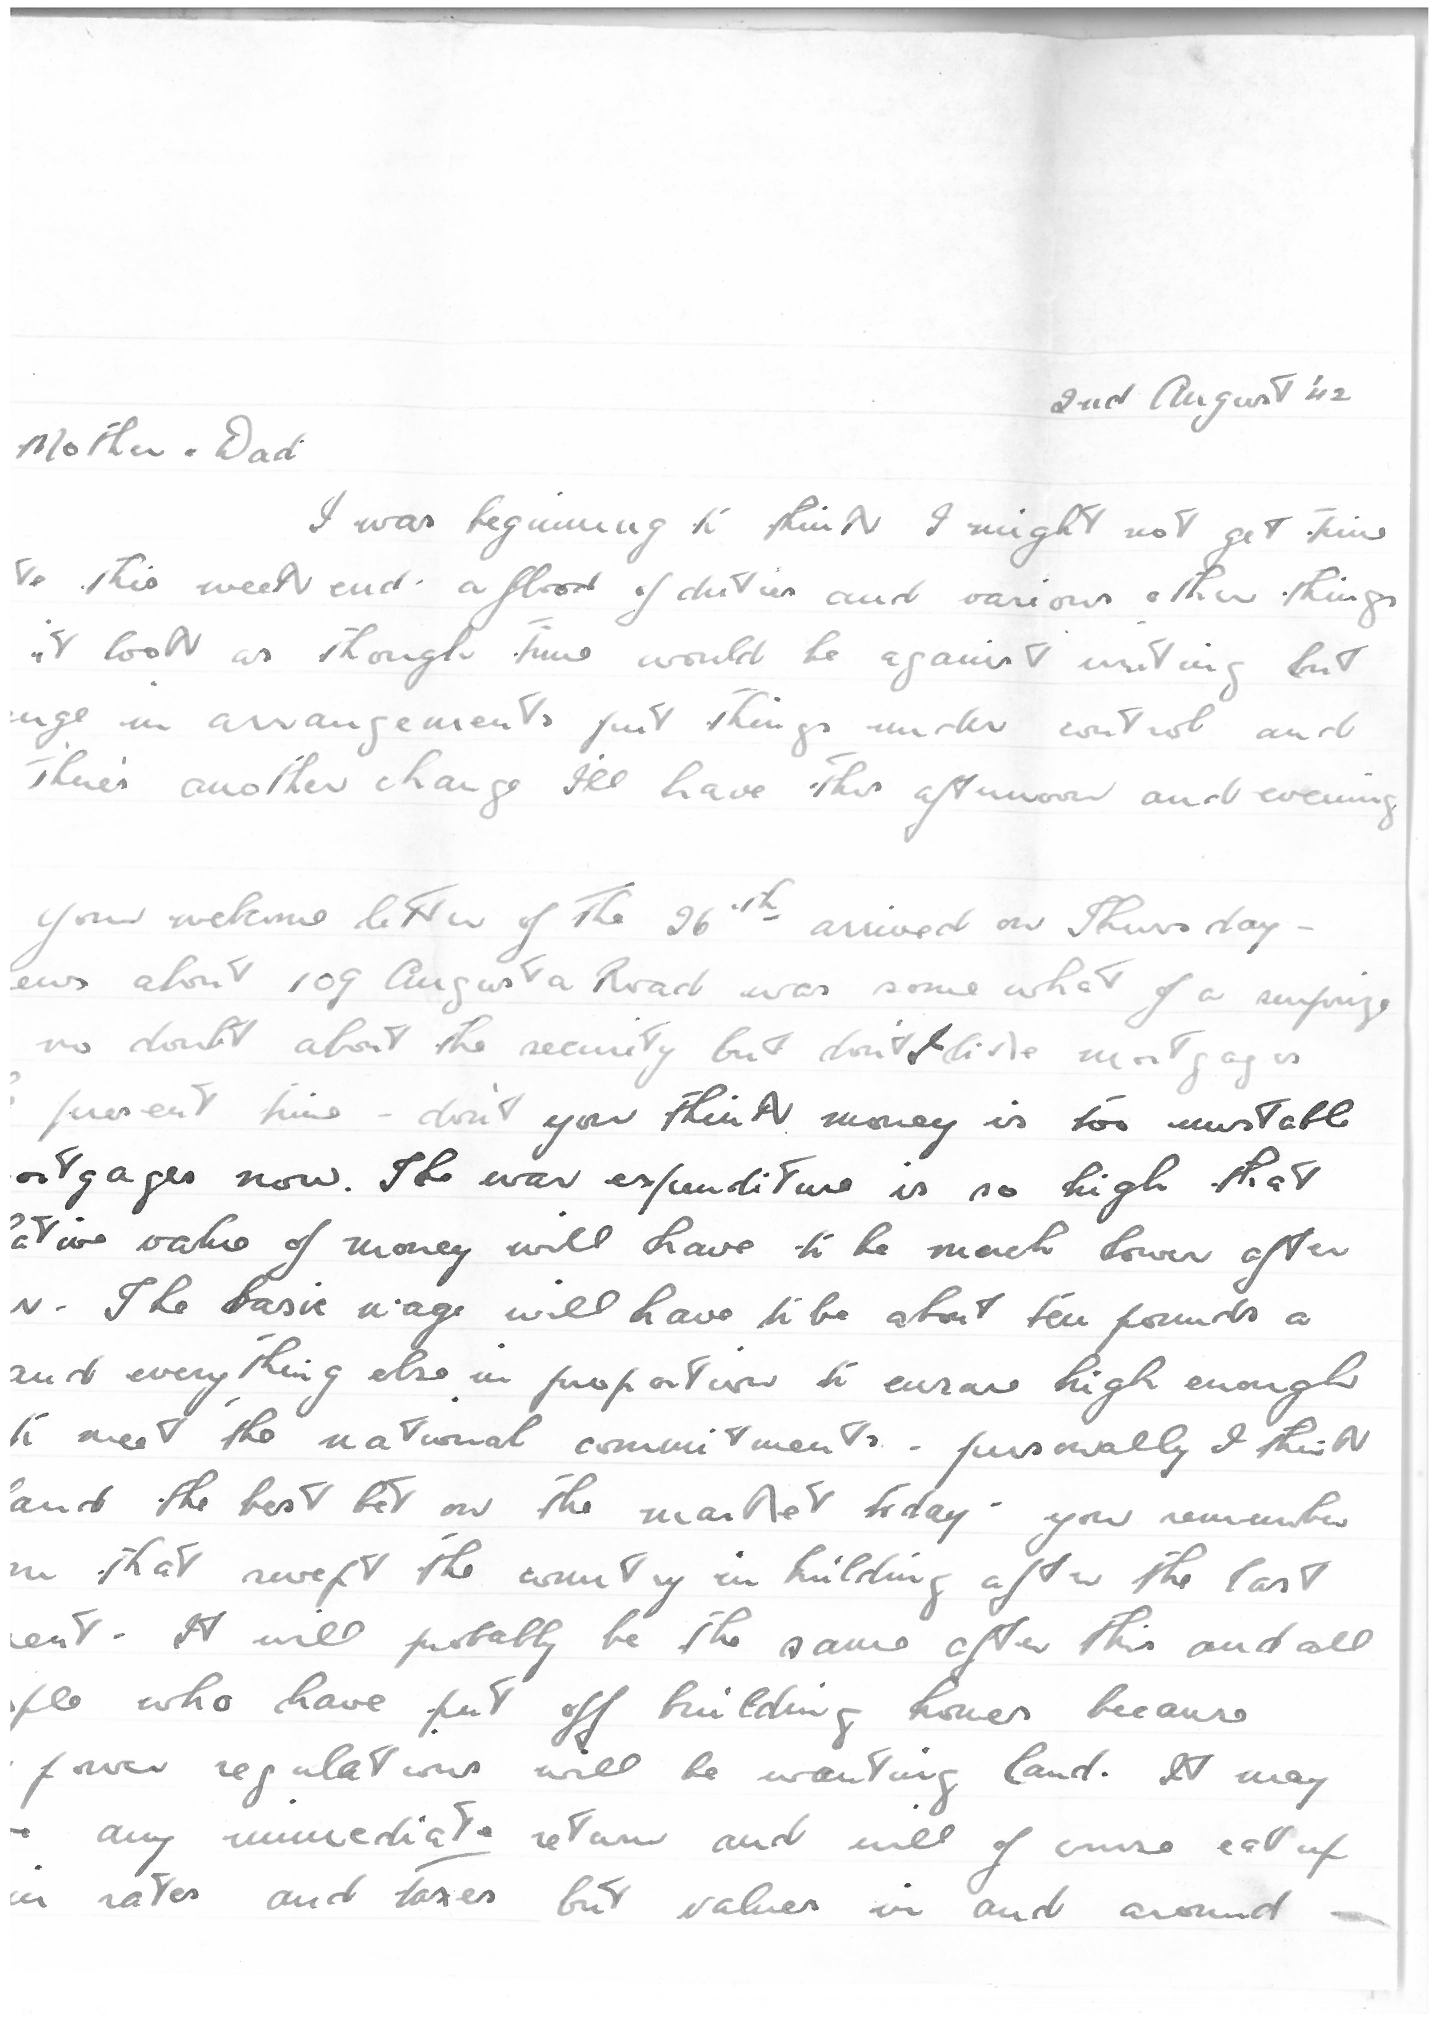 2nd August '42
Mother & Dad
I was beginning to think I might not get time
te this week end. a flood of duties and various other things
it look as though time would be against writing but
nge in arrangements put things under control and
there's another change I'll have this afternoon and evening
your welcome letter of the 26th arrived on Thursday -
ews about 109 Augusta Road was somewhat of a surprize
no doubt about the security but don't I like mortgages
present time - don't you think money is too unstable
ortgages now. The war expenditure is so high that
ative value of money will have to be much lower after
The basic wage will have to be about ten pounds a
and everything else in proportion to ensure high enough
to meet the national commitments. - personally I think
land the best bet on the market today - you remember
m that swept the country in building after the last
ent. It will probably be the same after this and all
ple who have put off building homes because
power regulations will be wanting land. It may
any immediate return and will of course eat up
in rates and taxes but values in and around -